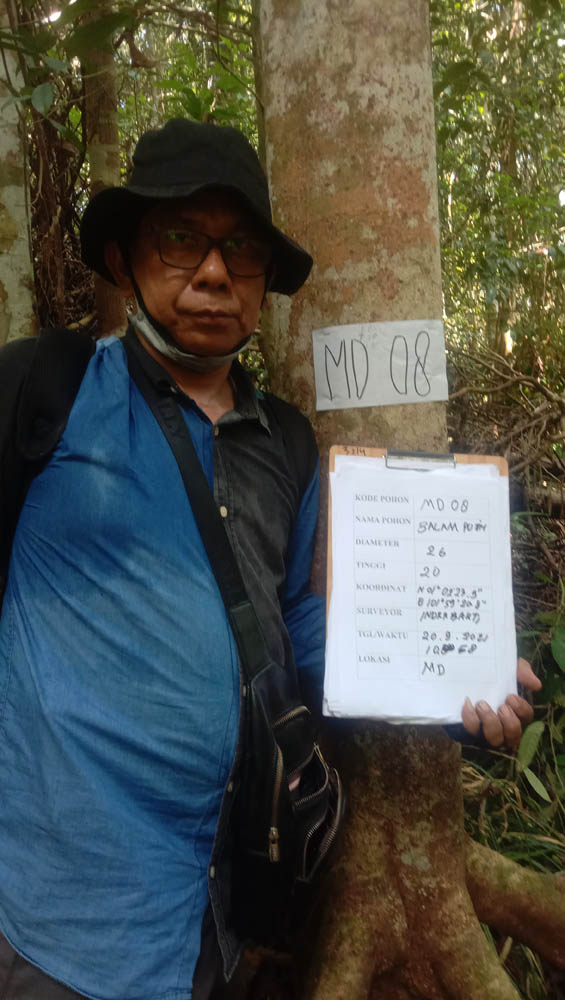 MD 08
3314
KODE POHON MD 08
NAMA POHON BALAM PUTIH
DIAMETER 26
TINGGI 20
KOORDINAT N 01° 03' 23.9"
E 101° 59' 20.8"
SURVEYOR INDRA BAKTI
TGL/WAKTU 20.9.2021
LOKASI MD